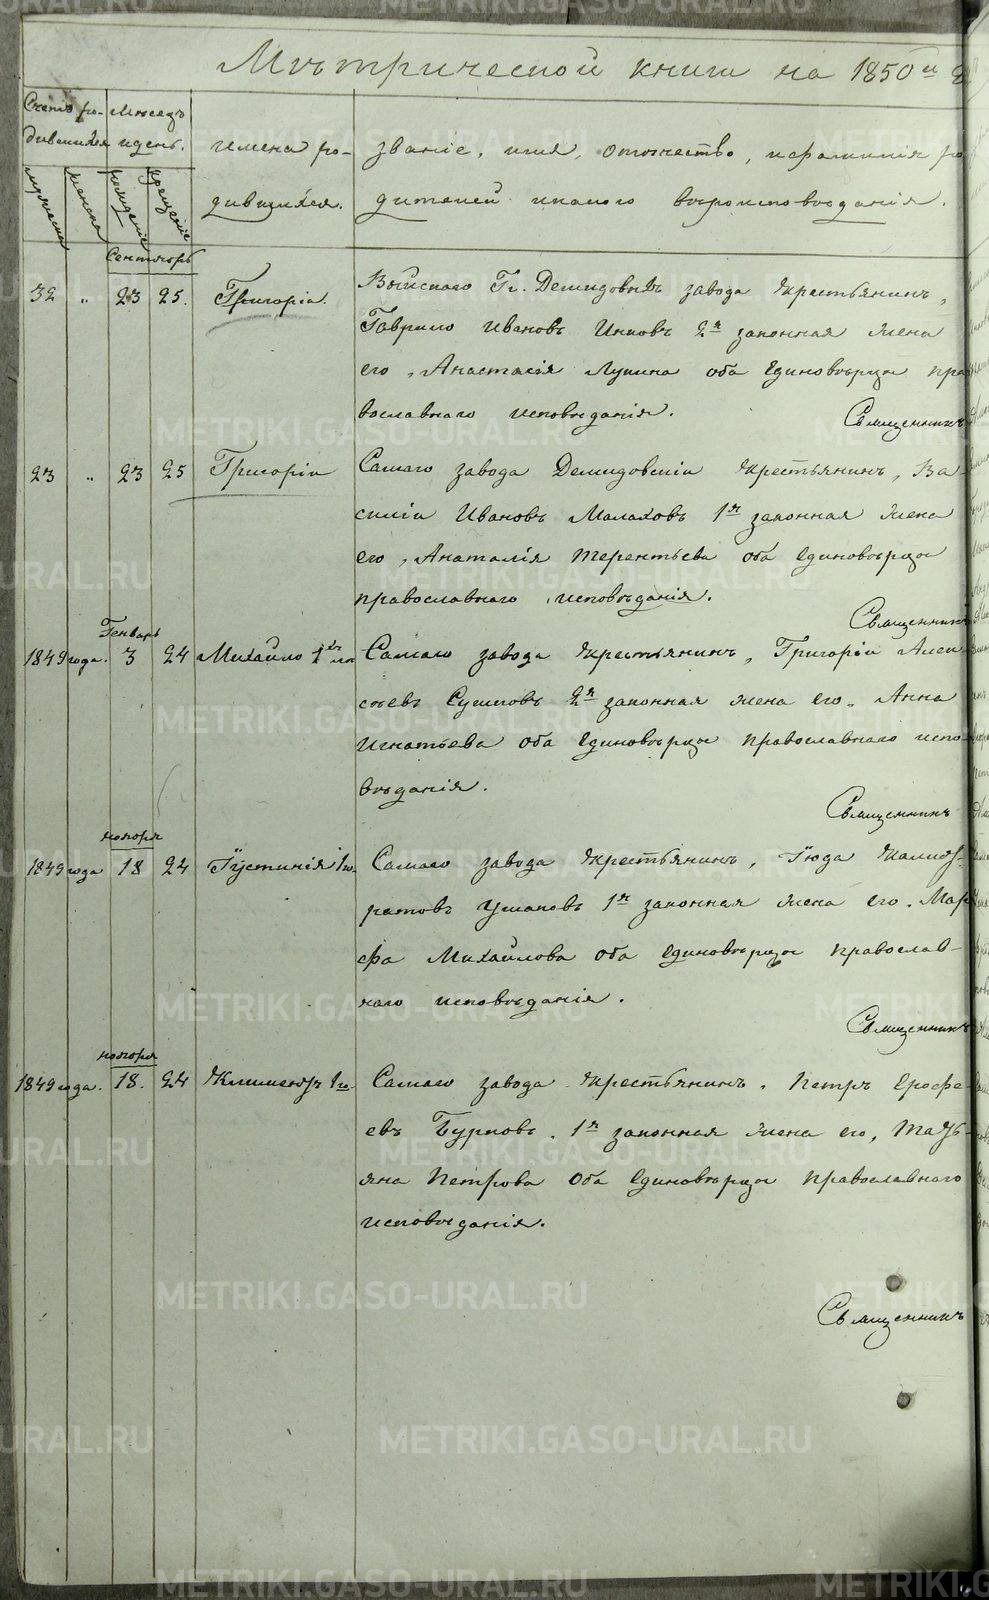 Метрической книги на 1850й г
Счетъ ро- Месяцъ
дившихся и день.
имена ро-
дившихся.
званіе, имя, отечество, и фамилія ро
дителей и какого вероисповѣданія.
мужеска
женска
рожденіе
крещеніе
Сентябрь
32 " 23 25. Григорій.
Выйскаго Гг. Демидовыхъ завода крестьянинъ,
Гаврило Ивановъ 2я законная жена
его, Анастасія Лукина оба единовѣрцы пра
вославнаго исповѣданія.
Священникъ
23 " 23 25 Григорій
Самаго завода Демидовскій крестьянинъ, Ва
силій Ивановъ Малаховъ 1я законная жена
его, Анаталія Терентьева оба единовѣрцы
православнаго исповѣданія.
Священникъ
Генварь
1849 года. 3 24 Михайло
Самаго завода крестьянинъ, Григорій Алек
сѣевъ Сушковъ 2я законная жена его, Анна
Игнатьева оба единовѣрцы православнаго испо
вѣданія.
Священникъ
ноября
1849 года 18 24 Іустинія 1го
Самаго завода крестьянинъ, Іюда
Ушаковъ 1я законная жена его. Мар
фа Михайлова оба единовѣрцы православ-
наго исповѣданія.
Священникъ
ноября
1849 года. 18. 24 Климентъ 1го
Самаго завода крестьянинъ. Петръ Ерофе
евъ Бурковъ. 1я законная жена его, Тать-
яна Петрова оба единовѣрцы православнаго
исповѣданія.
Священникъ
METRIKI.GASO-URAL.RU